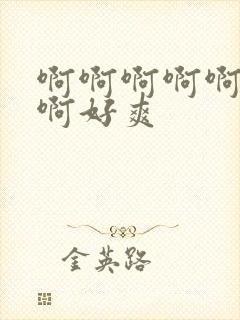 啊啊啊啊啊
啊好爽
金英路